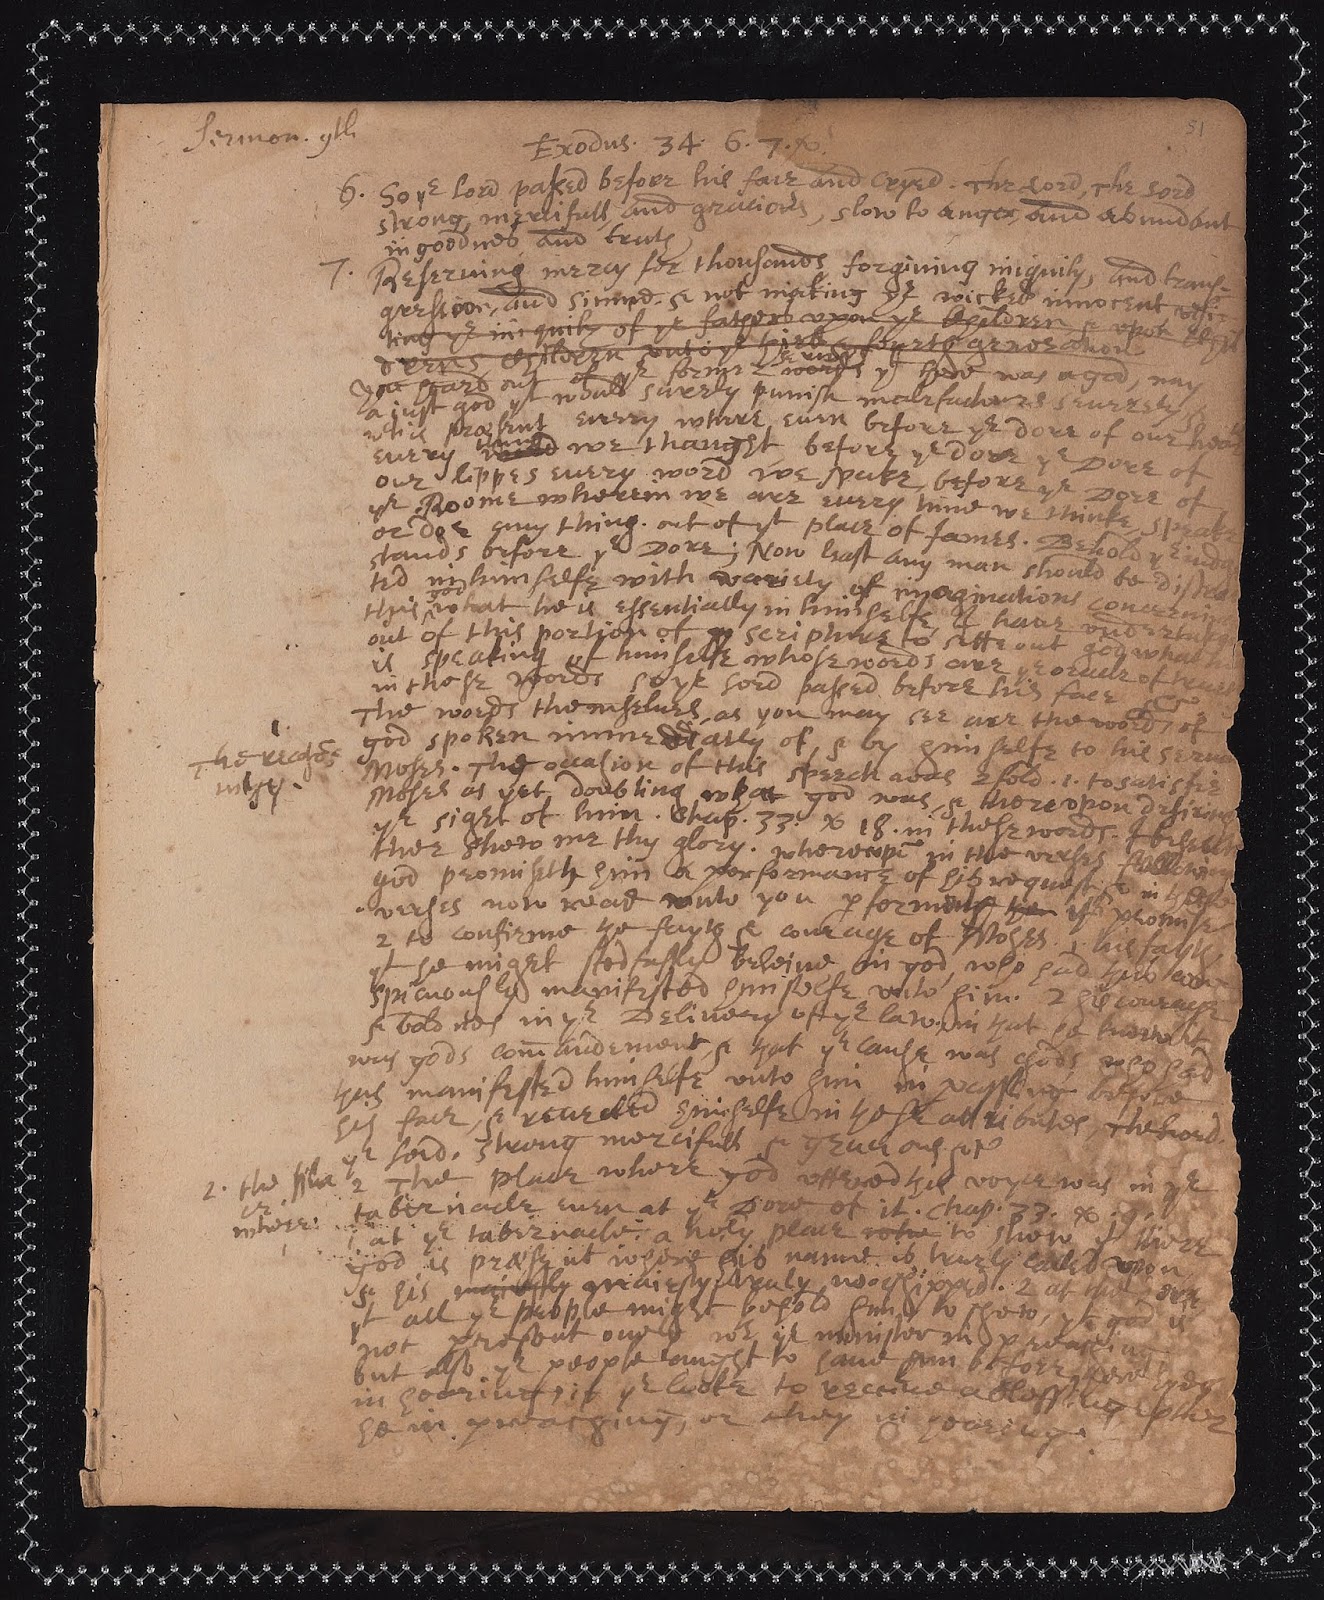 Sermon. 9th
51
Exodus. 34. 6. 7.
6. So ye Lord passed before his face and cryed. The Lord, The Lord
strong, mercifull, and gracious, slow to anger, and abundant
in goodnes and truth,
7. Reserving mercy for thousands, forgiuing iniquity, and trans-
gression, and sinne. & not making ye wicked innocent, visi-
ting ye iniquity of ye fathers upon ye Children, & upon Chil
drens Children unto ye third & fourth generation
you heard out of ye former words yt there was a god, nay
a just god yt would surely punish malefactours severely, &
who is præsent every where even before ye dore of our heart
every thing we thought, before ye dore ye Dore of
our lippes every word we spake, before ye Dore of
ye Roome wherein we are every time we thinke, speake
or doe any thing. out of yt place of James. Behold ye iudg
stands before ye Dore; Now least any man should be distrac
ted in himselfe with variety of imaginations concerning
this god what he is essentially in himselfe, I have undertaken
out of this portion of scripture to sett out god what he
is speaking of himselfe whose words are ye oracle of truth
in these words so ye Lord passed before his face &c
The words themselues, as you may see are the words of
god spoken immediatly of, & by himselfe to his servant
1.
The occasiō
why.
Moses. The occasion of this speech was 2fold. 1. to satisfie
Moses as yet doubting what god was, & thereupon desiring
ye sight of him. Chap. 33. 18. in these words. I beseech
thee shew me thy glory. whereupō in the verses following
god promiseth him a performance of his request & in these
verses now read unto you performeth his promise
2 to confirme the fayth & courage of Moses. 1 his fayth,
yt he might stedfastly beleive in god, who had thus con
spicuously manifested himselfe unto him. 2 his courage
& boldnes in ye Delivery of ye law, in that he knew it
was gods commandement, & that ye cause was gods, who had
thus manifested himselfe unto him in passing before
his face, & revealed himselfe in these attributes, The Lord.
ye Lord. strong mercifull & gracious &c
2. the
where.
2 The place where god uttered his voyce was in ye
tabernacle even at ye Dore of it. Chap. 33. 9.
1 at ye tabernacle. a holy place to shew yt there
god is præsent where his name is truely called upon
& his maiesty truly worshipped. 2 at the dore
yt all ye people might behold him, to shew, yt god is
not present onely wth ye minister in preaching
but also ye people ought to have him before their eyes
in hearing, if ye looke to receive a blessing either
he in preaching, or they in hearing.